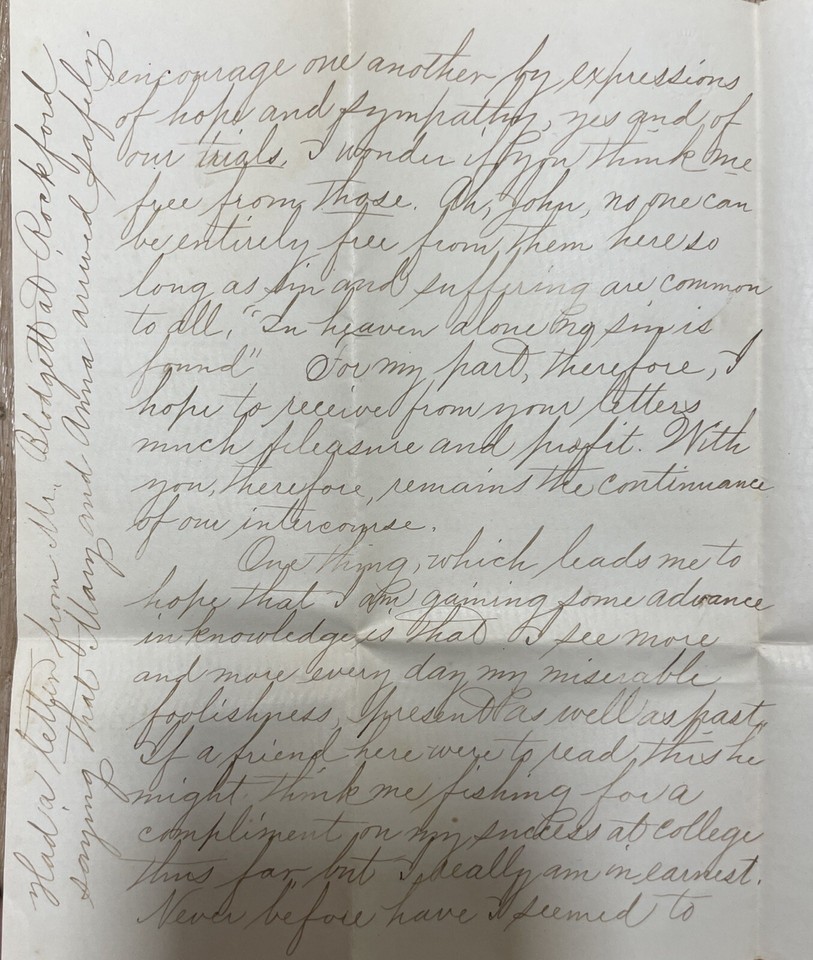 encourage one another by expressions
of hope and sympathy, yes and of
our trials. I wonder if you think me
free from those. Ah, John, no one can
be entirely free from them here so
long as sin and suffering are common
to all, "In heaven alone no sin is
found" For my part, therefore, I
hope to receive from your letters
much pleasure and profit. With
you, therefore, remains the continuance
of our intercourse.
One thing, which leads me to
hope that I am gaining some advance
in knowledge is that I see more
and more every day my miserable
foolishness, present as well as past.
If a friend here were to read this he
might think me fishing for a
compliment on my success at college
thus far, but I really am in earnest.
Never before have I seemed to
Had a letter from Mr. Blodgett at Rockford
saying that Mary and Anna arrived safely.